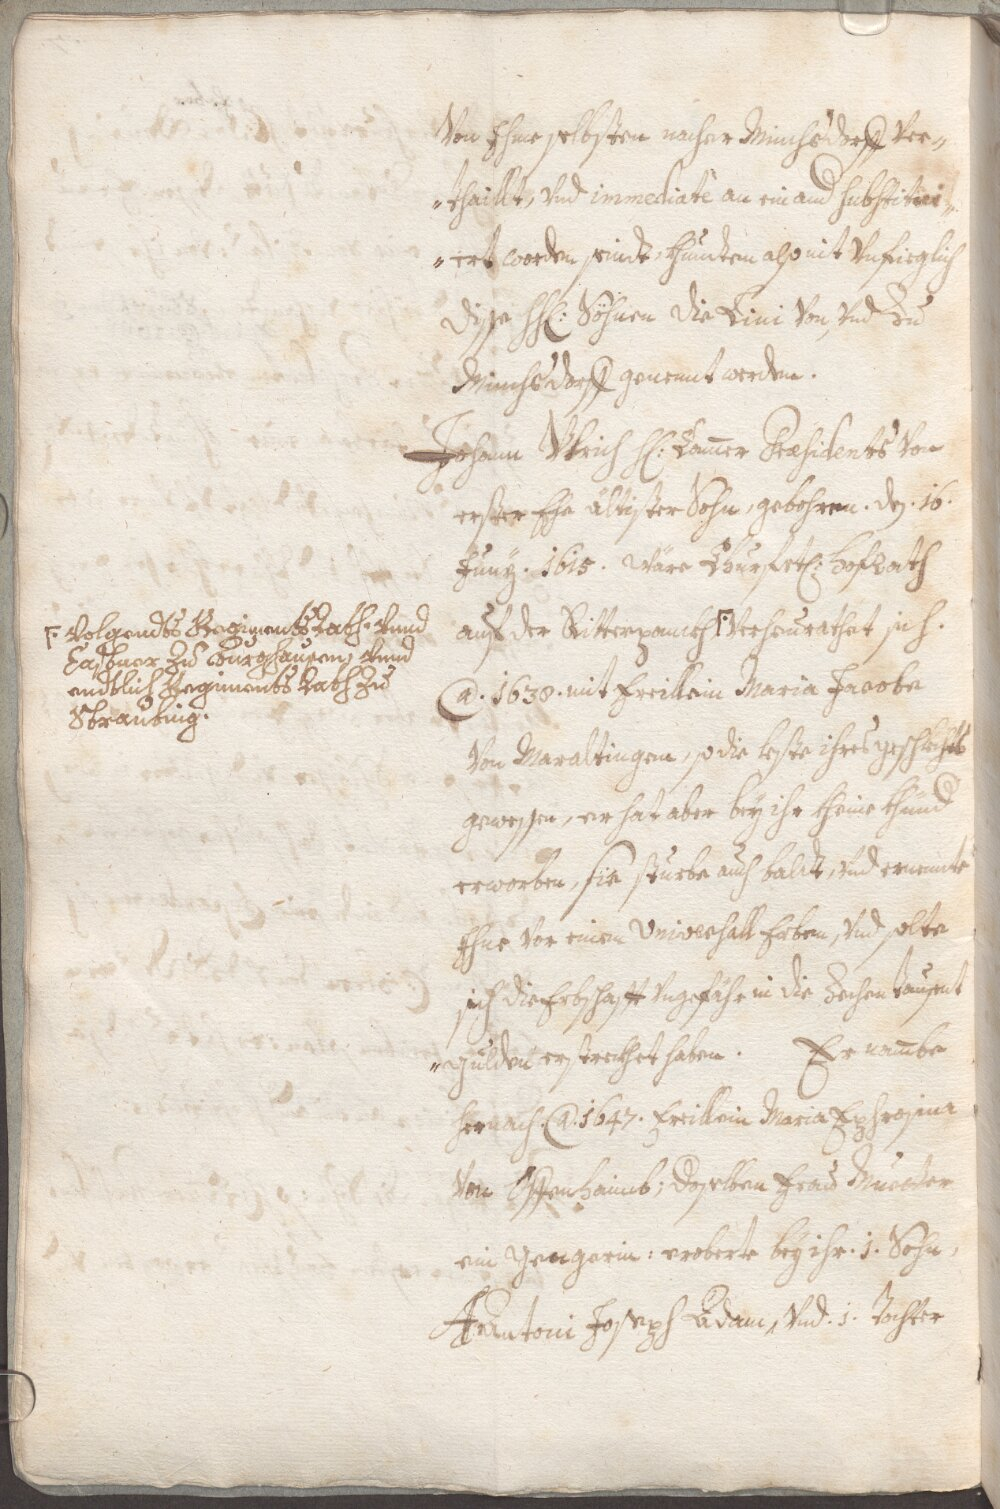 Von Ihme selbsten nacher Minchsdorff ver„
„thaillt, vnd immediatè an ein and substitui„
„ert worden seindt, khundten also nit vnfieglich
Disse hhl: Söhnen die Lini von, vnd zu
Minchsdorff genennt werden.
Johann Vlrich hl: Cammer Præsidents von
erster Ehe ältister Sohn, gebohren. den. 16.
Juny. 1615. ware Churfrtl: Hofrath
auf der Ritterpanckh verheurathet sich.
Ao. 1638. mit Freillein Maria Jacobe
von Maraltingen, so die leste ihres geschlechts
gewessen, er hat aber bey ihr kheine khind
erworben, sie sturbe auch baldt, vnd ernennte
Ihne vor einen Universall Erben, vnd solte
sich die Erbschafft vngefähr in die zechen tausent
„gulden erstreckhet haben. Er nambe
hernach. Ao. 1647. Freillein Maria Ephrosina
von Offenhaimb; dero selben Frau Muetter
ein : eroberte bey ihr. 1. Sohn,
Antoni Joseph Adam, vnd. 1. Tochter
volgendts Regiments Rath. vnnd
Casstner zu Burghausen, vnnd
endtlich Regiments Rath zu
Straubing.